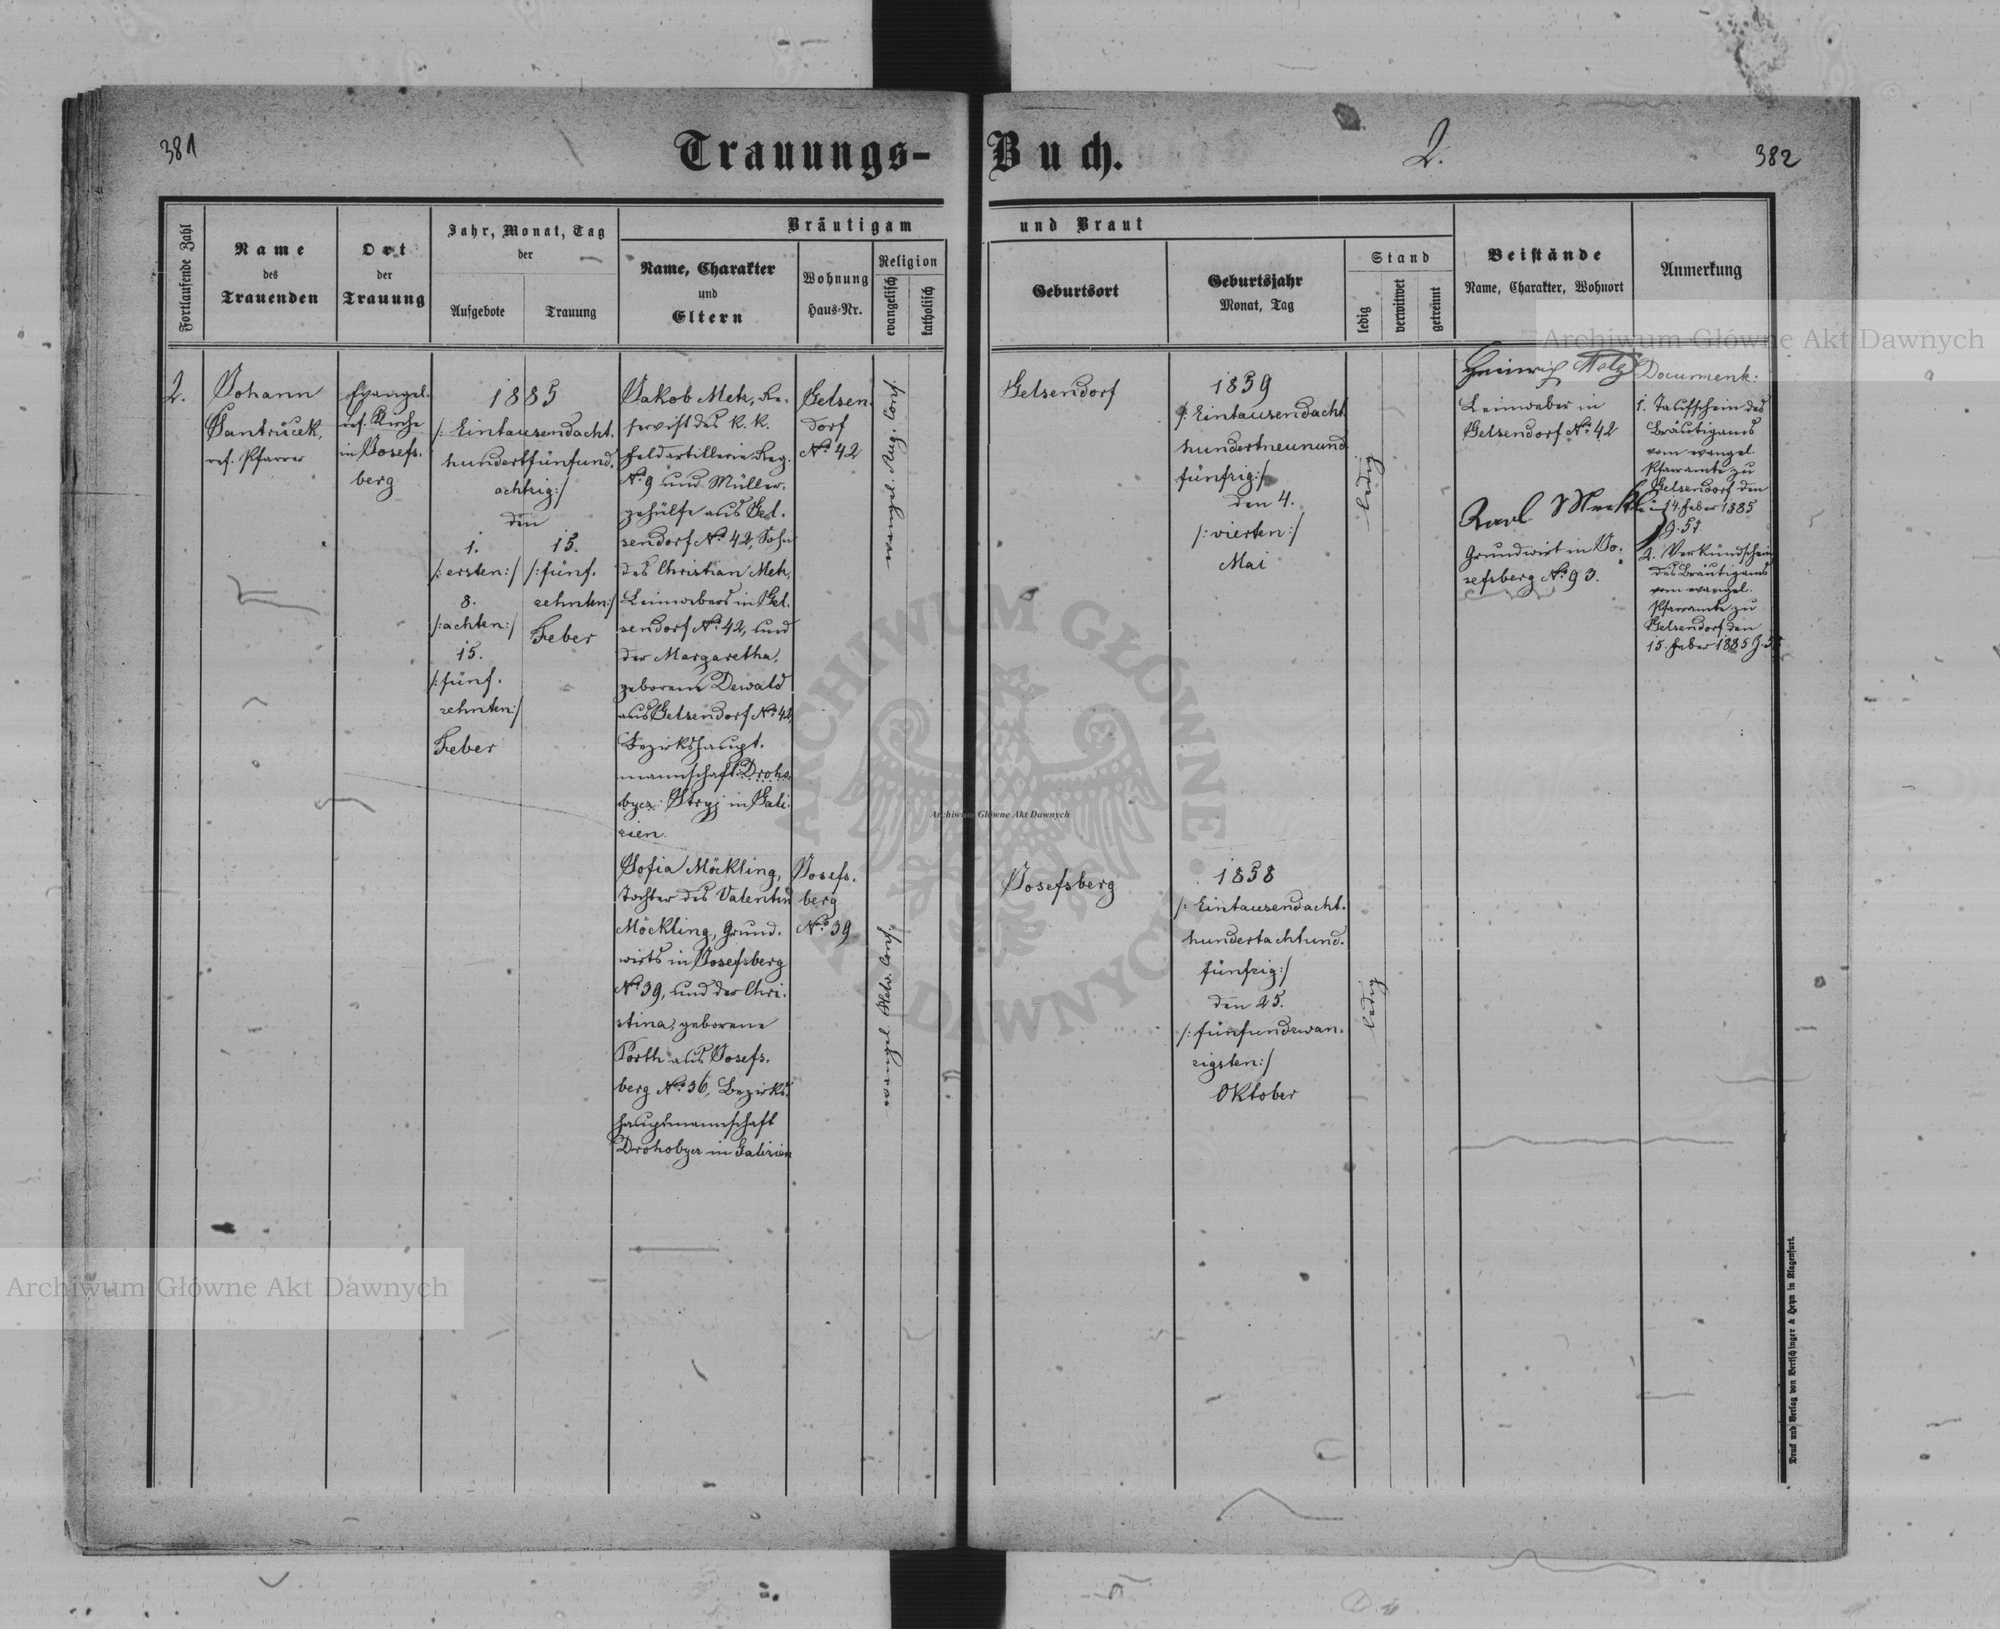 381
Trauungs-Buch.
2.
382
Fortlaufende Zahl
Name
des
Trauenden
Ort
der
Trauung
Jahr, Monat, Tag
der
Aufgebote
Trauung
Bräutigam und Braut
Name, Charakter
und
Eltern
Wohnung
Haus-Nr.
Religion
evangelisch
katholisch
Geburtsort
Geburtsjahr
Monat, Tag
Stand
ledig
verwitwet
getrennt
Beistände
Name, Charakter, Wohnort
Anmerkung
2.
Johann
Jantrucek,
ref. Pfarrer
Evangel.
ref. Kirche
in Josefs-
berg
1885
/: Eintausendacht-
hundertfünfund-
achtzig :/
den
1.
/: ersten :/
8.
/: achten :/
15.
/: fünf-
zehnten :/
Feber
15.
/: fünf-
zehnten :/
Feber
Jakob Metz, Re-
servist des k. k.
Feldartillerie Reg.
No 9 und Müller-
gehülfe aus Gel-
sendorf No 42, Sohn
des Christian Metz,
Leinwebers in Gel-
sendorf No 42, und
der Margaretha,
geborene Dewald
aus Gelsendorf No 42,
Bezirkshaupt-
mannschaft Droho-
bycz: Stryj in Gali-
zien.
Gelsen-
dorf
No 42
evangel. Aug. Conf.
Gelsendorf
1859
/: Eintausendacht-
hundertneunund-
fünfzig :/
den 4.
/: vierten :/
Mai
ledig
Heinrich Metz
Leinweber in
Gelsendorf No 42
Karl
Grundwirt in Jo-
sefsberg No 93.
Document:
1. Taufschein des
Bräutigams
vom evangel.
Pfarramte zu
Gelsendorf den
14. Feber 1885
Z. 51.
2. Verkündschein
des Bräutigams
vom evangel.
Pfarramte zu
Gelsendorf den
15. Feber 1885 Z.
Sofia Möckling,
Tochter des Valentin
Möckling, Grund-
wirts in Josefsberg
No 39, und der Chri-
stina, geborene
Porth aus Josefs-
berg No 36, Bezirks-
hauptmannschaft
Drohobycz in Galizien
Josefs-
berg
No 39
evangel. Helv. Conf.
Josefsberg
1858
/: Eintausendacht-
hundertachtund-
fünfzig :/
den 25.
/: fünfundzwan-
zigsten :/
Oktober
ledig
Druck und Verlag von Bertschinger & Heyn in Klagenfurt.
Archiwum Główne Akt Dawnych
Archiwum Główne Akt Dawnych
Archiwum Główne Akt Dawnych
ARCHIWUM GŁÓWNE AKT DAWNYCH